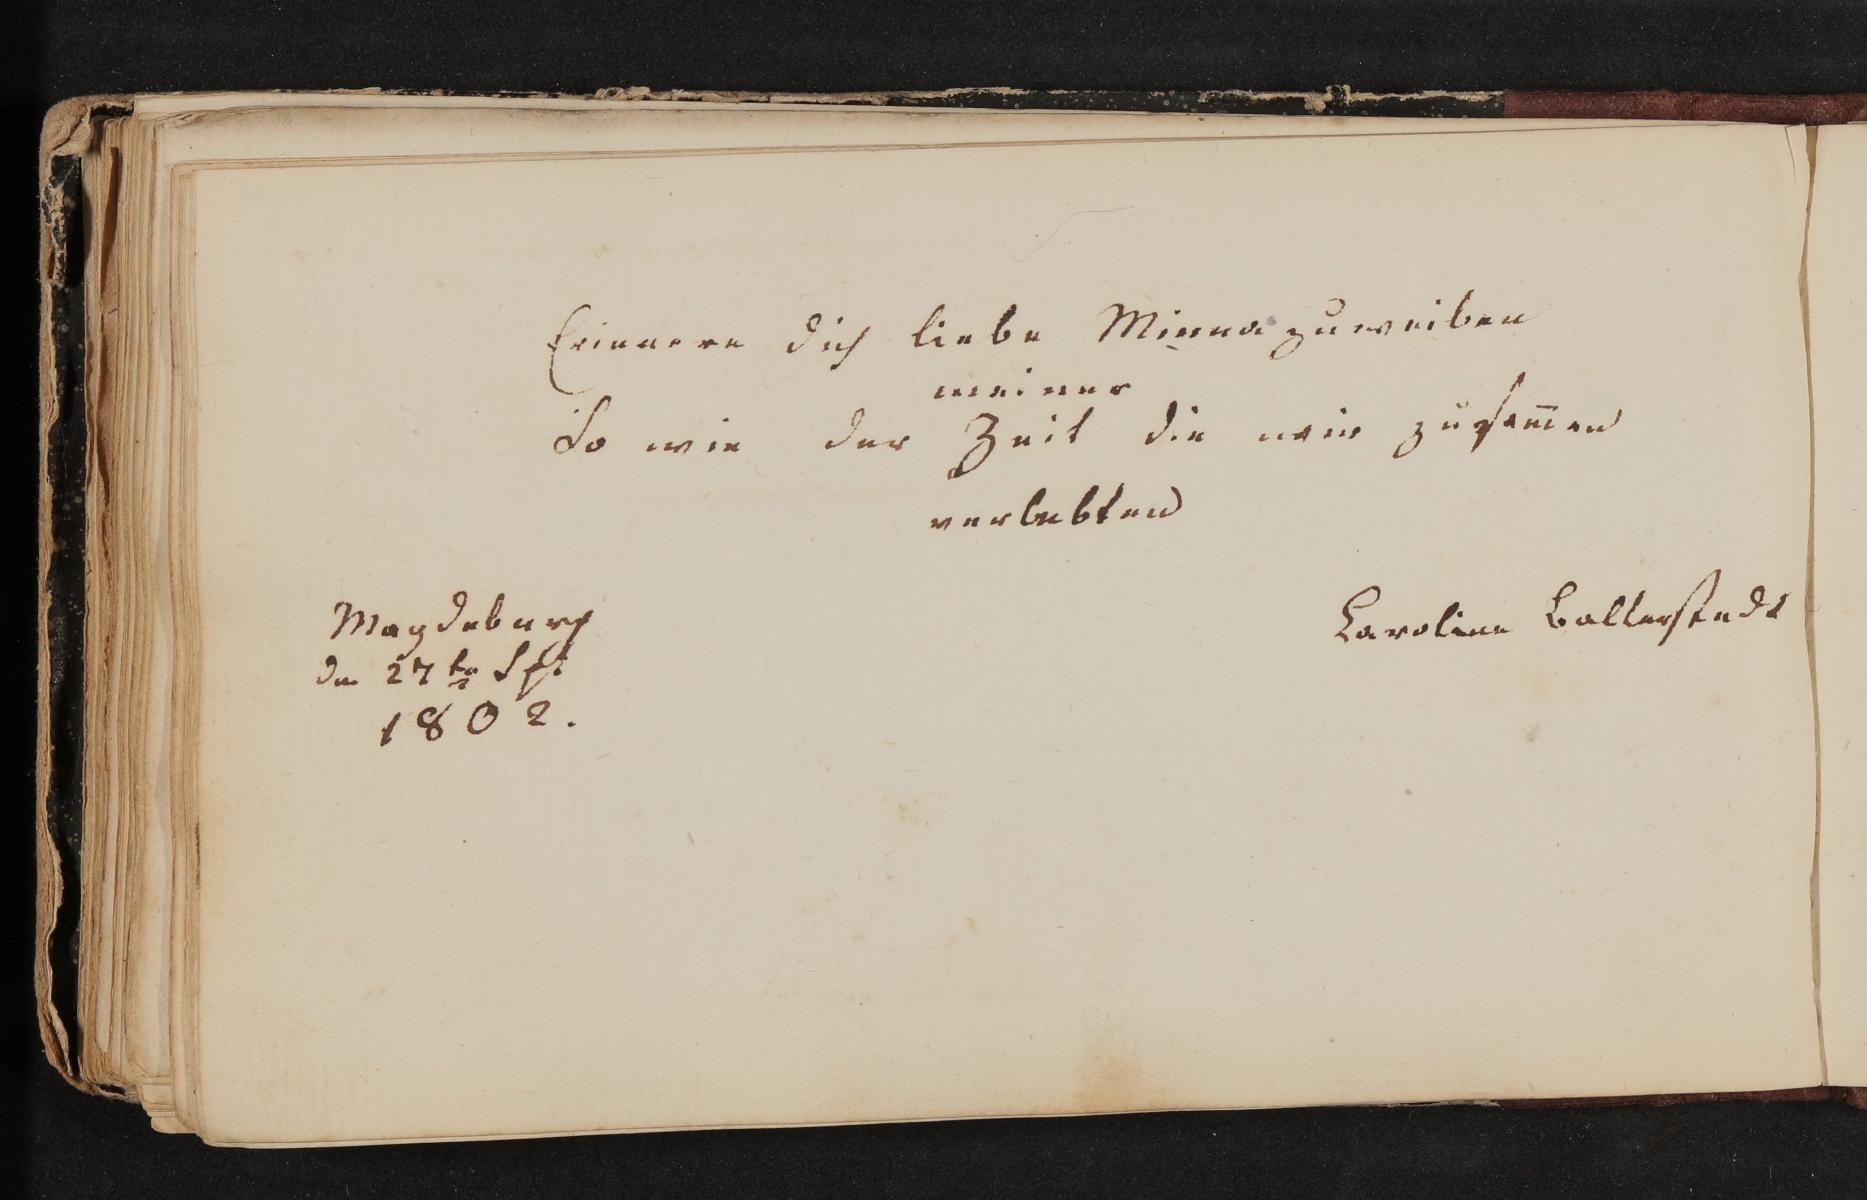 Erinnere dich liebe Minna zuweilen
meiner
So wie der Zeit die wir zusam̅en
verlebten
Magdeburg
den 27ten Spt
1802.
Caroline Ballerstedt